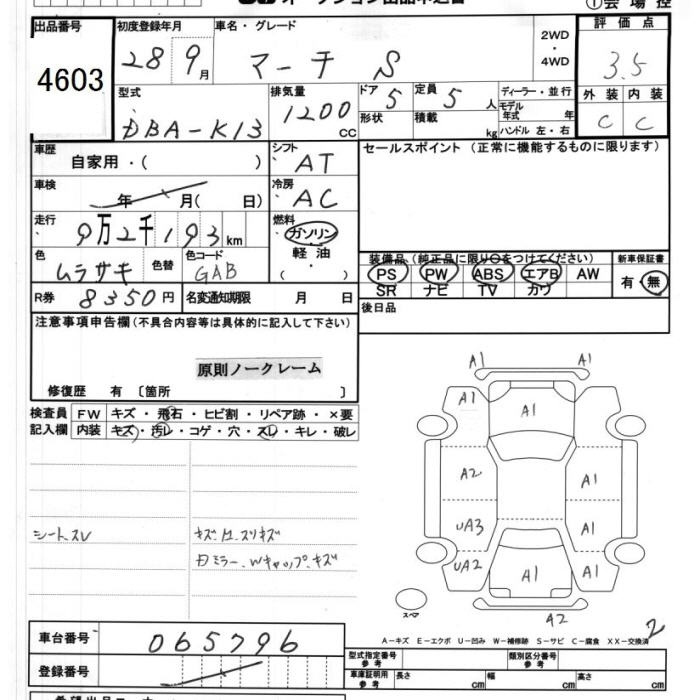 ①会場控
出品番号
初度登録年月
車名・グレード
評価点
4603
28 9月
マーチ S
2WD・4WD
3.5
型式
排気量
ドア 5
定員 5人
ディーラー・並行
外装
内装
DBA-K13
1200cc
形状
積載 kg
モデル年式 年
ハンドル 左・右
C
C
車歴
自家用・( )
シフト
AT
セールスポイント (正常に機能するものに限ります)
車検
年 月( 日)
冷房
AC
走行
9万2千193km
燃料
ガソリン・軽油・( )
色
ムラサキ
色替
色コード
GAB
装備品 (純正品に限り○をつけてください)
新車保証書
PS PW ABS エアB AW
有・無
SR ナビ TV カワ
R券 8350円
名変通知期限 月 日
後日品
注意事項申告欄(不具合内容等は具体的に記入して下さい)
原則ノークレーム
修復歴 有 〔箇所 〕
検査員
FW
キズ・飛石・ヒビ割・リペア跡・×要
記入欄
内装
キズ・汚レ・コゲ・穴・スレ・キレ・破レ
シート、スレ
キズ、スリキズ
ミラー、Wキャップ、キズ
A1
A1
A1
A1
A2
A1
UA3
A1
UA2
A1
A1
スペア
A2
2
A-キズ E-エクボ U-凹み W-補修跡 S-サビ C-腐食 XX-交換済
車台番号
065796
登録番号
型式指定番号 参考
類別区分番号 参考
車庫証明用 参考
長さ cm
幅 cm
高さ cm